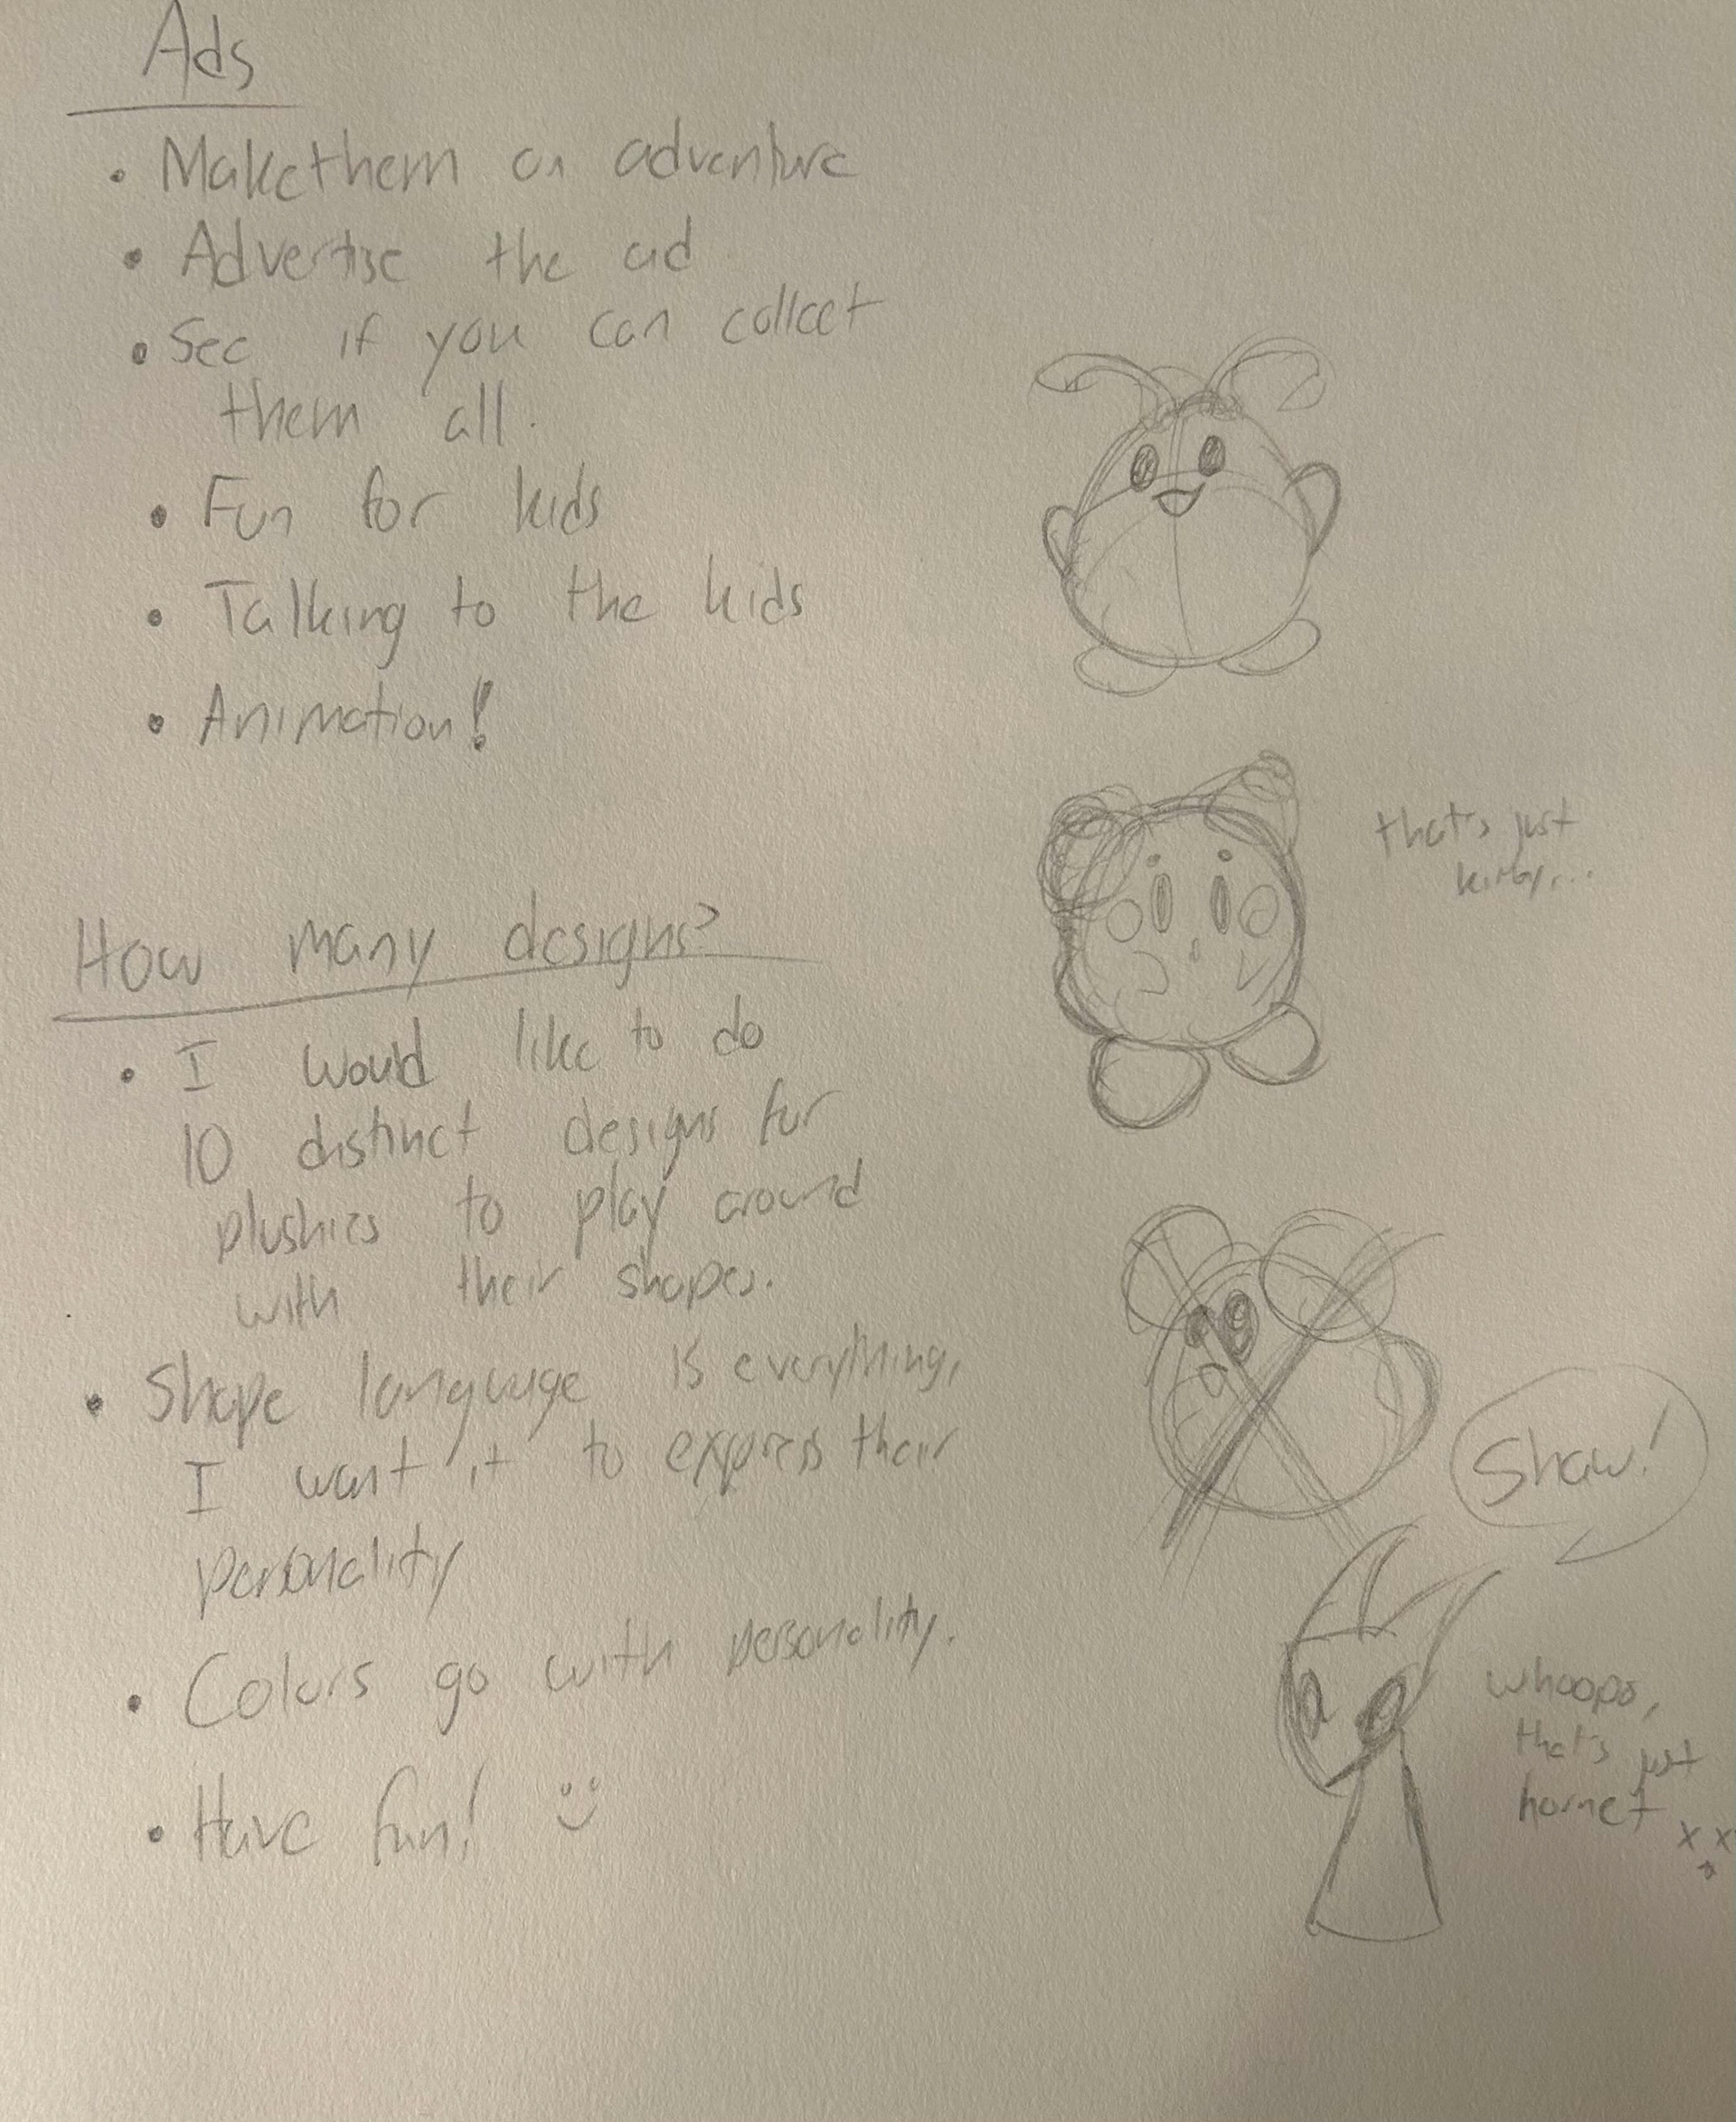 Ads
• Make them an adventure
• Advertise the ad
• See if you can collect
them all.
• Fun for kids
• Talking to the kids
• Animation!
that's just
kirby...
How many designs?
• I would like to do
10 distinct designs for
plushies to play around
with their shapes.
• Shape language is everything,
I want it to express their
personality
Shaw!
• Colors go with personality.
whoops,
that's just
hornet
• Have fun! :)